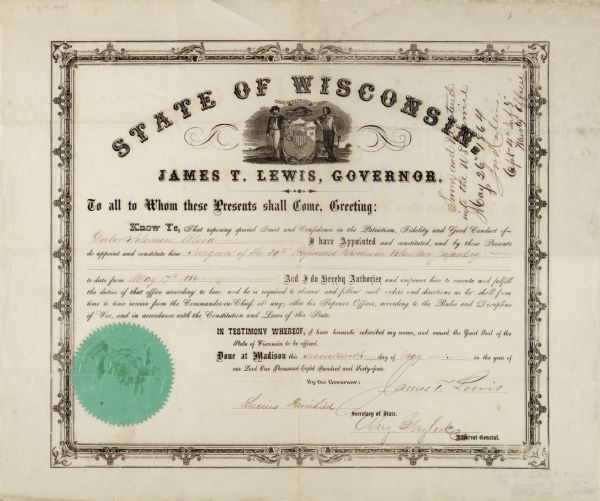 STATE OF WISCONSIN,
JAMES T. LEWIS, GOVERNOR.
To all to Whom these Presents shall Come, Greeting:
KNOW YE, That reposing special Trust and Confidence in the Patriotism, Fidelity and Good Conduct of
Doctor Solomon I have Appointed and constituted, and by these Presents
do appoint and constitute him Surgeon of the 19th Regiment Wisconsin Volunteer Infantry
to date from May 17th And I do Hereby Authorize and empower him to execute and fulfill
the duties of that office according to law; and he is required to observe and follow such orders and directions as he shall from
time to time receive from the Commander-in-Chief, or any other his Superior Officer, according to the Rules and Discipline
of War, and in accordance with the Constitution and Laws of this State.
IN TESTIMONY WHEREOF, I have hereunto subscribed my name, and caused the Great Seal of the
State of Wisconsin to be affixed.
Done at Madison this seventeenth day of May in the year of
our Lord One Thousand Eight Hundred and Sixty-four.
By the Governor: James T. Lewis
Lucius Fairchild
Secretary of State.
Aug. Gaylord
Adjutant General.
May 26th 1864
Capt